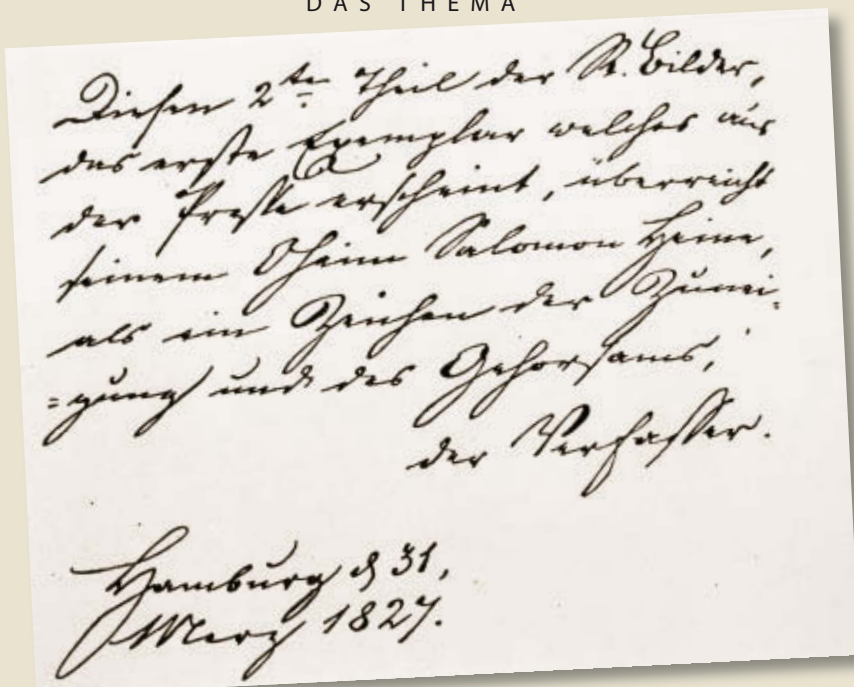 DAS THEMA
Diesen 2ten Theil der R. Bilder,
das erste Exemplar welches aus
der Presse erscheint, überreicht
seinem Oheim Salomon Heine,
als ein Zeichen der Zunei-
=gung und des Gehorsams,
der Verfasser.
Hamburg d 31,
Merz 1827.